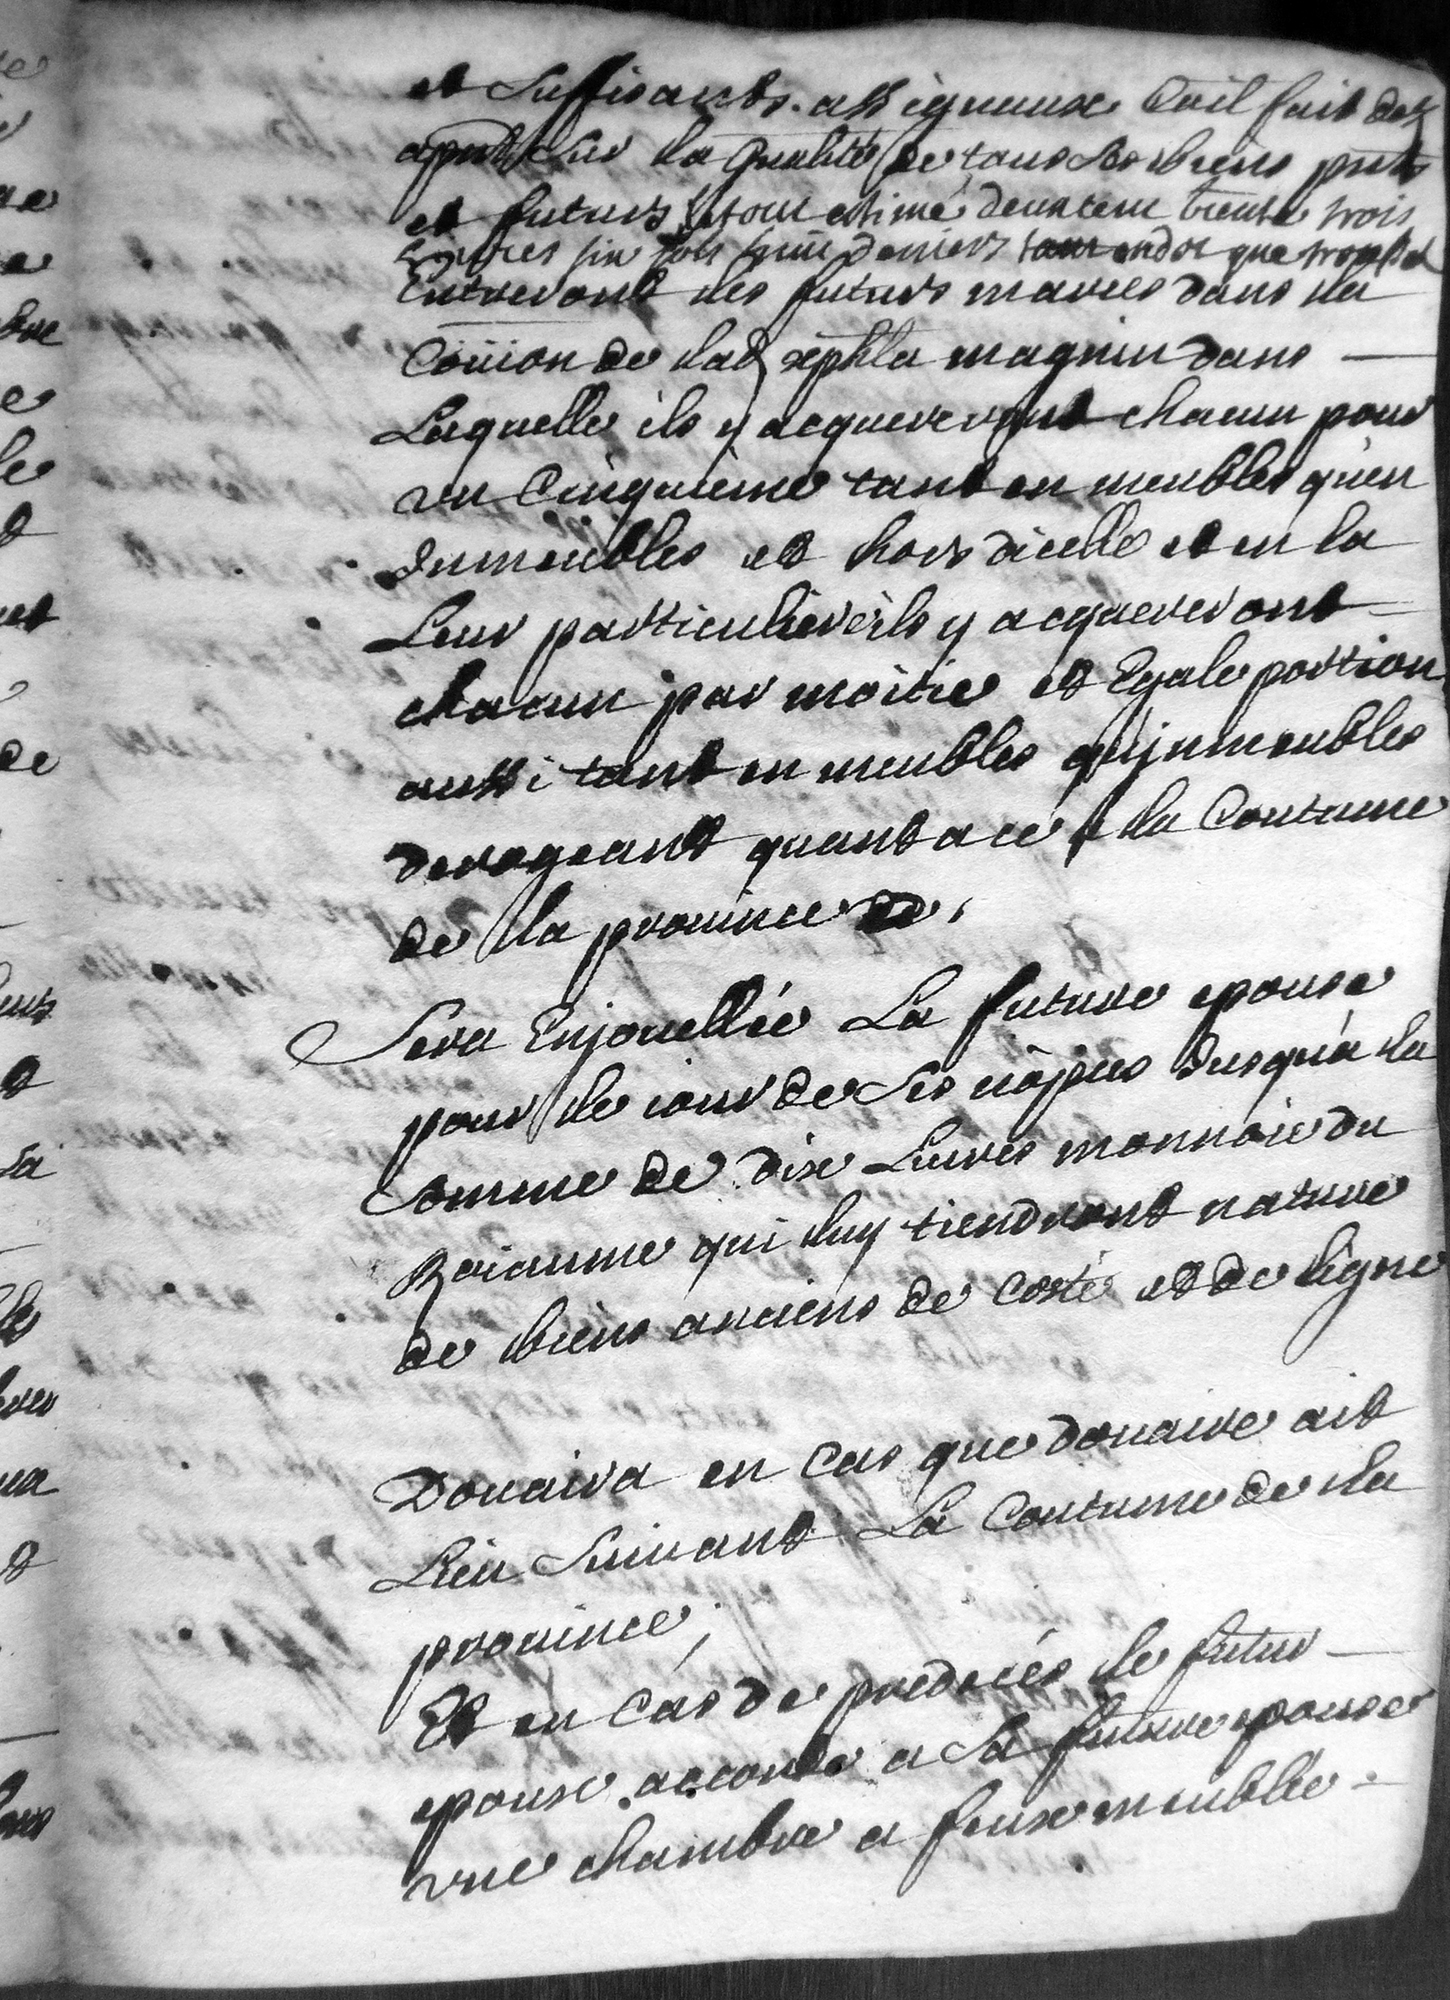 et suffisants assignaux quil fait dez
apnt sur la qualité de tous ses biens pnts
et futurs le tout estimé deux cent trente trois
Livres six sols huit deniers tant en dot que troussel
Entreront les futurs mariés dans la
Coñion de lad magnin dans
Laquelle ils y acquereront chacun pour
un Cinquieme tant en meubles quen
Immeubles et hors dicelle et en la
Leur particulierе ils y acquereront
chacun par moitié et Egale portion
aussi tant en meubles qu'jmmeubles
derogeant quant a ce a la Coutume
de la province
Sera Enjouellée La future epouse
pour le jour de ses nôpces Jusqu'a la
Somme de dix Livres monnoie du
Roiaume qui luy tiendront nature
de biens anciens de costé et de ligne
Douaira en cas que douaire ait
Lieu Suivant La Coutume de la
province ;
Et en cas de predecés le futur
epoux accorde a la future epouse
une chambre a feux meublée